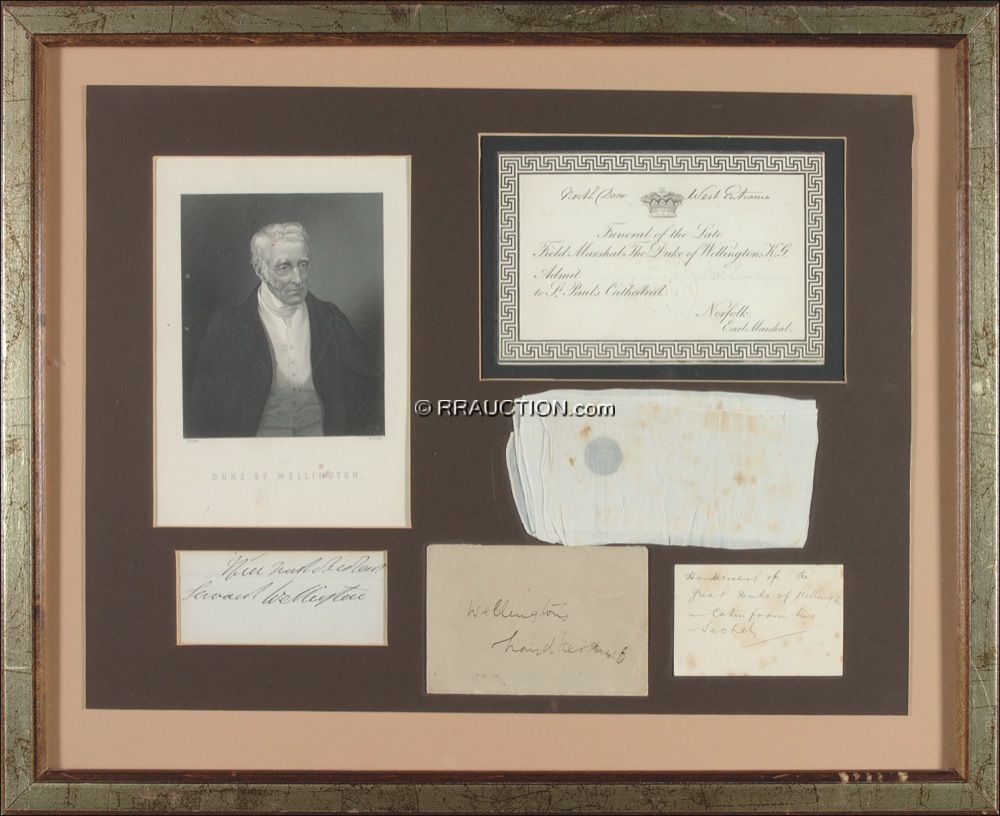 North Door West Entrance
Funeral of the Late
Field Marshal The Duke of Wellington, K.G.
Admit
to St. Paul's Cathedral.
Norfolk.
Earl Marshal.
© RRAUCTION.com
DUKE OF WELLINGTON.
Servant Wellington
Wellington's
handkerchief
Handkerchief of the
great Duke of Wellington
taken from his
Sachel